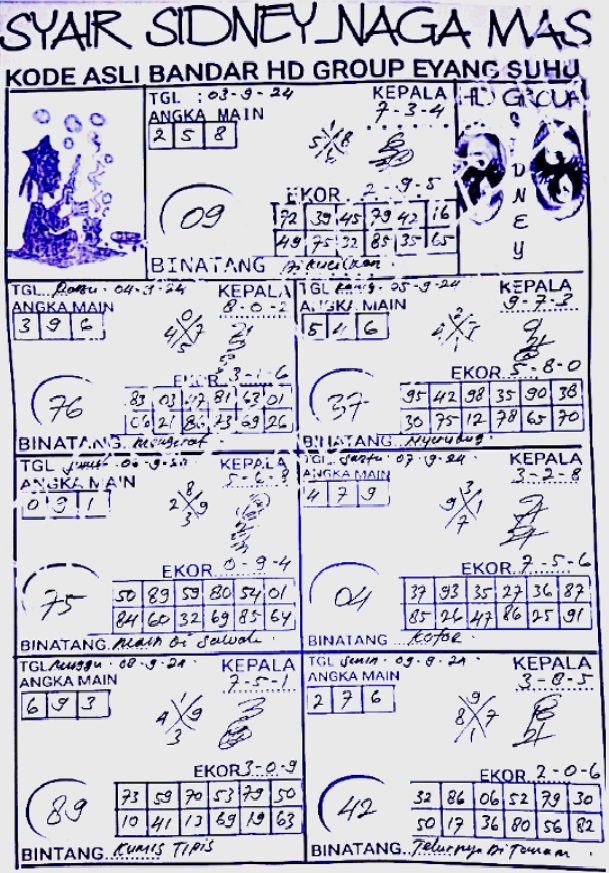 SYAIR SIDNEY NAGA MAS
KODE ASLI BANDAR HD GROUP EYANG SUHU
TGL : 03-9-24
ANGKA MAIN
2 5 8
KEPALA
7-3-4
09
EKOR 2-9-5
72 39 45 79 42 16
49 75 32 85 35 65
BINATANG
HD GROUP
SIDNEY
TGL 04-9-24
ANGKA MAIN
3 9 6
KEPALA
8-0-2
0
4 7
5
76
EKOR 3-1-6
83 03 17 81 63 01
06 21 86 73 69 26
BINATANG mengerat
TGL 05-9-24
ANGKA MAIN
5 4 6
KEPALA
9-7-3
37
EKOR 5-8-0
95 42 98 35 90 38
30 75 12 78 65 70
BINATANG
TGL
ANGKA MAIN
0 9 1
KEPALA
5-6-8
8
2 9
3
75
EKOR 0-9-4
50 89 59 80 54 01
84 60 32 69 85 64
BINATANG main di sawah
TGL Sabtu 07-9-24
ANGKA MAIN
4 7 9
KEPALA
3-2-8
3
9 1
7
04
EKOR 7-5-6
37 93 35 27 36 87
85 26 47 86 25 91
BINATANG Kotor
TGL Minggu 08-9-24
ANGKA MAIN
6 9 3
KEPALA
7-5-1
1
4 9
3
89
EKOR 3-0-9
73 59 70 53 79 50
10 41 13 69 19 63
BINTANG Kumis Tipis
TGL Senin 09-9-24
ANGKA MAIN
2 7 6
KEPALA
3-8-5
9
8 7
1
42
EKOR 2-0-6
32 86 06 52 79 30
50 17 36 80 56 82
BINATANG Telurnya Di Tanam